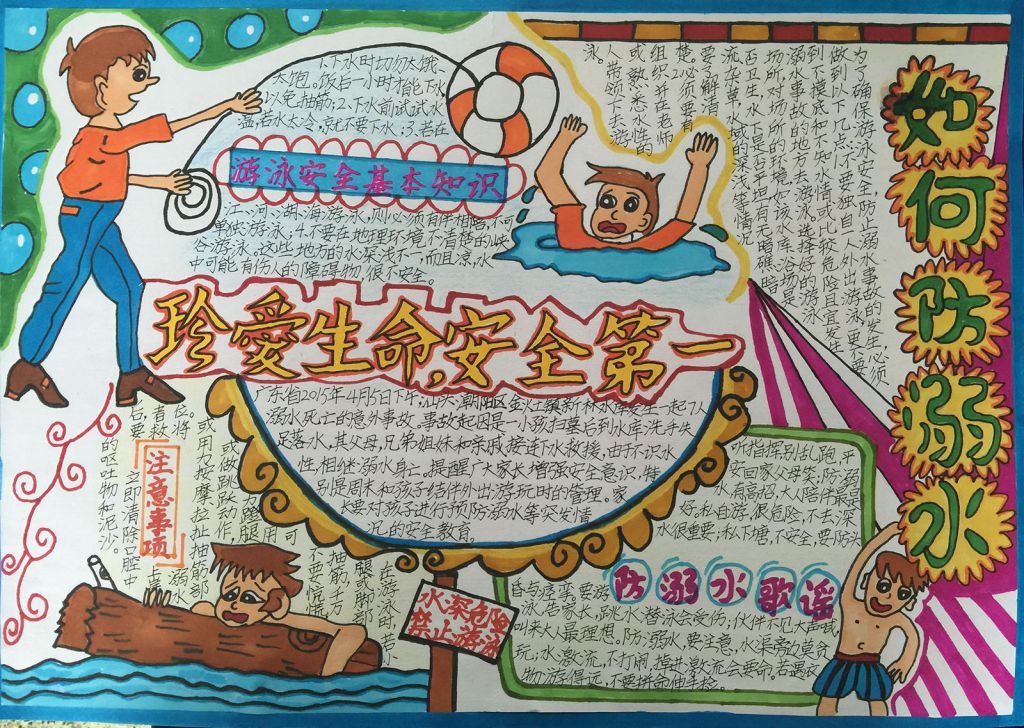 珍爱生命,安全第一
如何防溺水
为了确保游泳安全,防止溺水事故的发生必须
做到以下几点:1.不要独自一人外出游泳,更不要
到不摸底和不知水情或比较危险且宜发生
溺水事故的地方去游泳。选择好的游泳
场所,对场所的环境,如该水库、浴场是
否卫生,水下是否平坦,有无暗礁、暗
流、杂草,水域的深浅等情况
要了解清
楚。2.必须要有
组织并在老师
或熟悉水性的
人带领下去游
泳。
1、下水时切勿太饿、
太饱。饭后一小时才能下水,
以免抽筋;2、下水前试试水
温,若水太冷,就不要下水;3、若在
游泳安全基本知识
江、河、湖、海游泳,则必须有伴相陪,不可
单独游泳;4、不要在地理环境不清楚的峡
谷游泳。这些地方的水深浅不一,而且凉,水
中可能有伤人的障碍物,很不安全。
广东省2015年4月5日下午,汕头,潮阳区金灶镇新林水库发生一起7人
溺水死亡的意外事故。事故起因是一小孩扫墓后到水库洗手失
足落水,其父母,兄弟姐妹和亲戚接连下水救援,由于不识水
性相继溺水身亡。提醒广大家长增强安全意识,特
别是周末和孩子结伴外出游玩时的管理。家
长要对孩子进行预防溺水等突发情
况的安全教育。
注意事项
在游泳时,若小
腿或脚部
抽筋,千万
不要惊慌,
可用
力蹬腿
或做跳跃动作,
或用力按摩、拉扯抽筋部
位。将溺水
者救上岸
后,要立即清除口腔中
的呕吐物和泥沙。
水深危险
禁止游泳
防溺水歌谣
听指挥,别乱跑,平
安回家父母笑。防溺
水,有高招,大人陪伴最
好,私自游,很危险,不去深
水很重要;私下塘,不安全,要防头
昏与痉挛;要游
泳,告家长,跳水替泳会受伤;伙伴不见大声喊,
叫来大人最理想,防溺水,要注意,水渠旁边莫贪
玩;水激流,不打闹,掉进激流会要命。若遇衣
物游得远,不要拼命伸手捡。